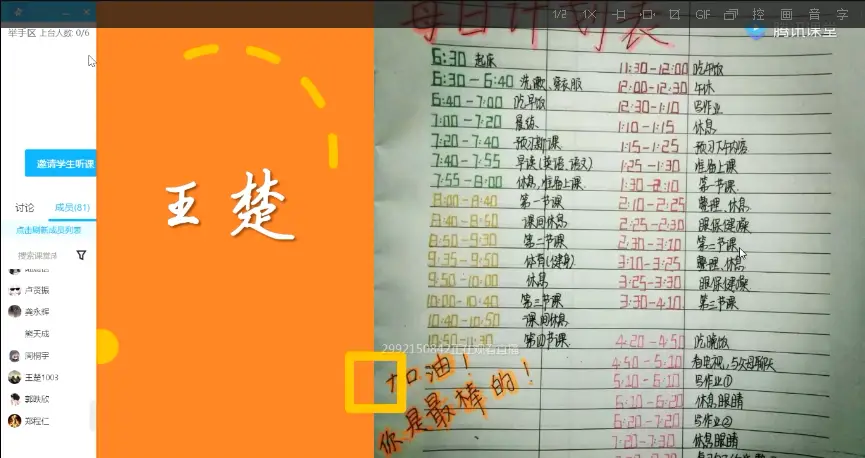 1/2
1X
GIF
控 画 音 字
举手区 上台人数: 0/6
邀请学生听课
讨论
成员(81)
点击刷新成员列表
卢贤振
龚永辉
熊天成
王楚1003
郭昳欣
郑程仁
王楚
腾讯课堂
每日计划表
6:30 起床
6:30-6:40 洗漱、穿衣服
6:40-7:00 吃早饭
7:00-7:20 晨练
7:20-7:40 预习新课
7:40-7:55 早读(英语、语文)
7:55-8:00 休息,准备上课
8:00-8:40 第一节课
8:40-8:50 课间休息
8:50-9:30 第二节课
9:35-9:50 体育(健身)
9:50-10:00 休息
10:00-10:40 第三节课
10:40-10:50 课间休息
10:50-11:30 第四节课
11:30-12:00 吃午饭
12:00-12:30 午休
12:30-1:10 写作业
1:10-1:15 休息
1:15-1:25 预习下午内容
1:25-1:30 准备上课
1:30-2:10 第一节课
2:10-2:25 整理、休息
2:25-2:30 眼保健操
2:30-3:10 第二节课
3:10-3:25 整理、休息
3:25-3:30 眼保健操
3:30-4:10 第三节课
4:20-4:50 吃晚饭
4:50-5:10 看电视,与父母聊天
5:10-6:10 写作业①
6:10-6:20 休息眼睛
6:20-7:20 写作业②
7:20-7:30 休息眼睛
2992150842正在观看直播
加油!
你是最棒的!